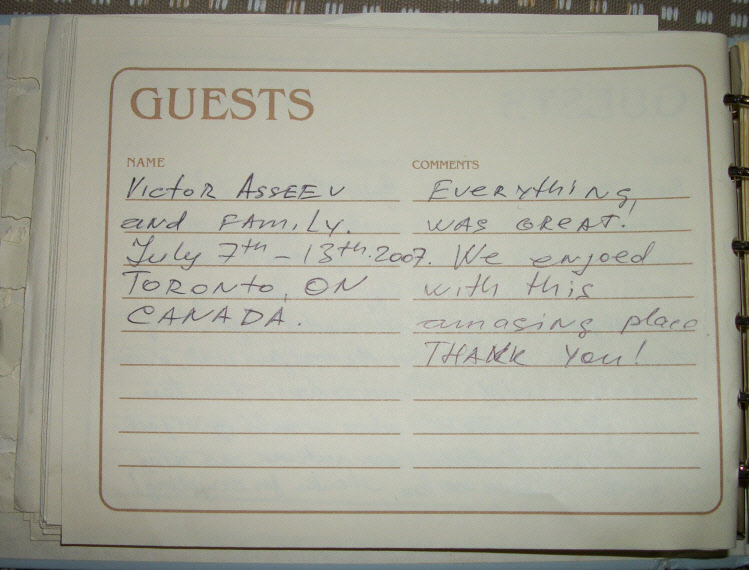 GUESTS
NAME
Victor Asseev
and Family.
July 7th - 13th. 2007.
Toronto, ON
CANADA.
COMMENTS
Everything,
was great!
We enjoed
with this
amasing place
THANK You!